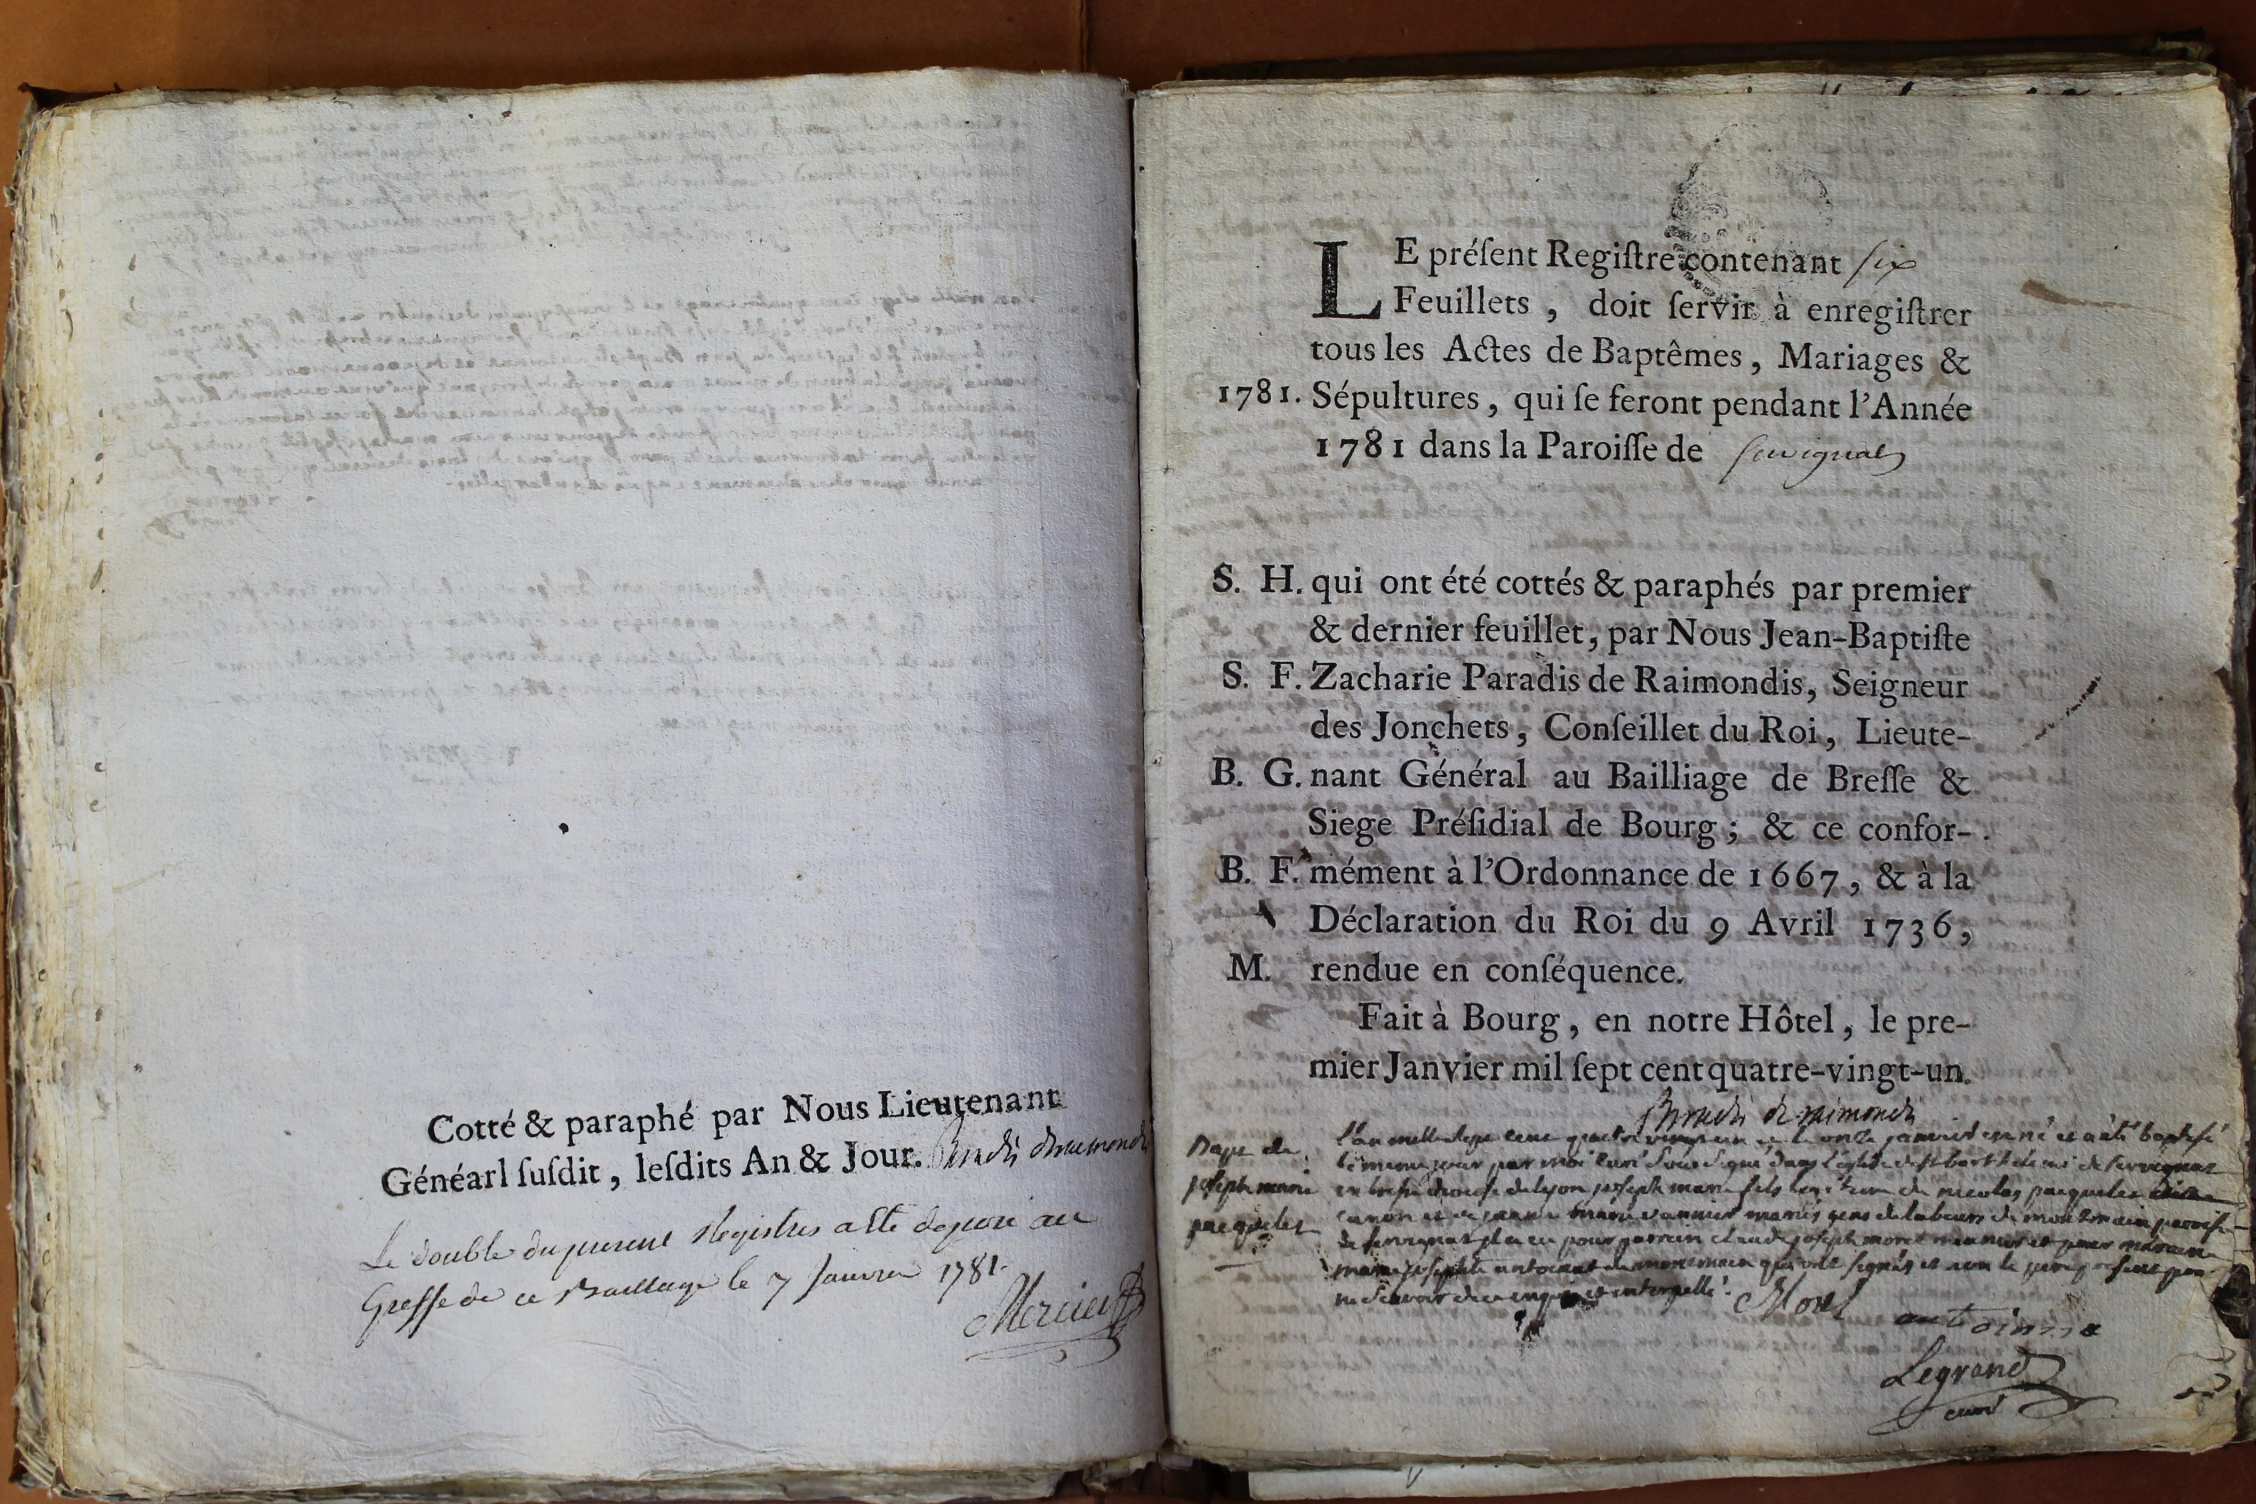 Cotté & paraphé par Nous Lieutenant
Généarl ſuſdit, leſdits An & Jour. Paradis deraimondis
Le double du present Registre a Eté deposé au
Greffe de ce Bailliage le 7 Janvier 1781.
Mercier
LE préſent Regiſtre contenant six
Feuillets, doit ſervir à enregiſtrer
tous les Actes de Baptêmes, Mariages &
1781. Sépultures, qui ſe feront pendant l'Année
1781 dans la Paroiſſe de Servignat
S. H. qui ont été cottés & paraphés par premier
& dernier feuillet, par Nous Jean-Baptiſte
S. F. Zacharie Paradis de Raimondis, Seigneur
des Jonchets, Conſeillet du Roi, Lieute-
B. G. nant Général au Bailliage de Breſſe &
Siege Préſidial de Bourg; & ce confor-
B. F. mément à l'Ordonnance de 1667, & à la
Déclaration du Roi du 9 Avril 1736,
M. rendue en conſéquence.
Fait à Bourg, en notre Hôtel, le pre-
mier Janvier mil ſept cent quatre-vingt-un.
Paradis de raimondis
Bapt de
joseph marie
pacquelet
l'an mille sept cent quatre vingt un et le onze janvier est né et a été baptisé
le meme jour par moi curé Sous Signé dans l'église de St barthelemi de servignat
en bresse diocese de lyon joseph marie fils légitime de nicolas pacquelet
et de jeanne marie vannier mariés gens de labeurs de montmain paroisse
de servignat il a eu pour parrein claude joseph morel et pour mareine
marie josephte antoinat de montmain qui ont signés et non le pere present pour
ne Scavoir de ce enquis et interpellé.
Morel
Legrand
curé